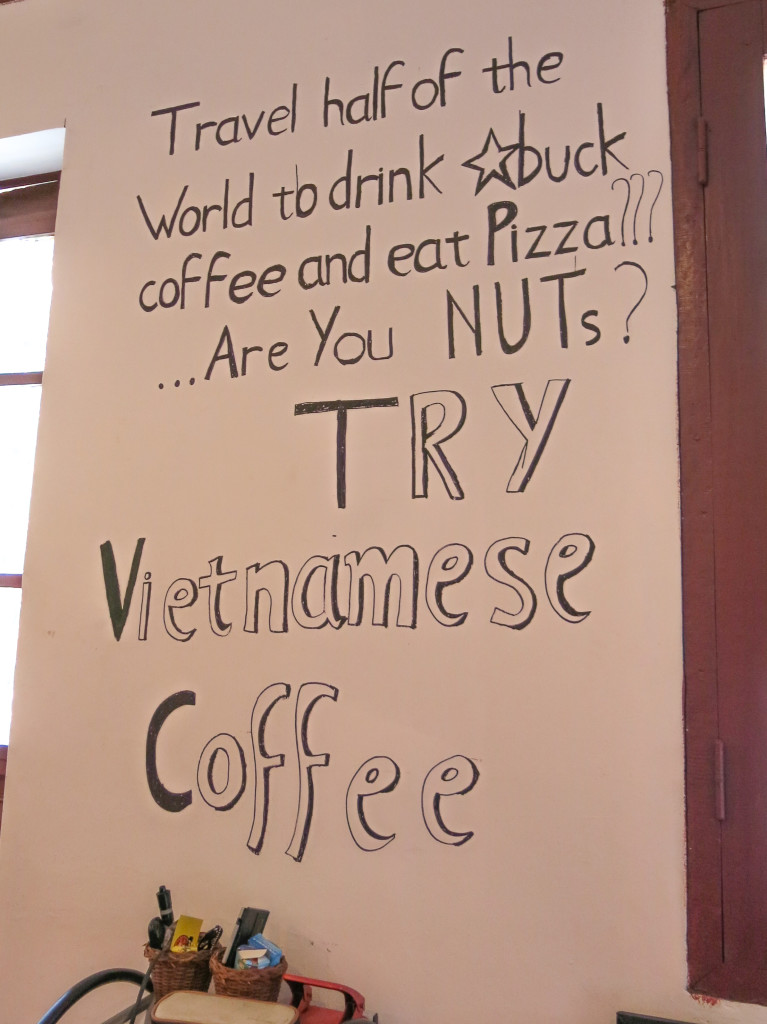 Travel half of the
World to drink ☆buck
coffee and eat Pizza???
...Are You NUTs?
TRY
Vietnamese
Coffee